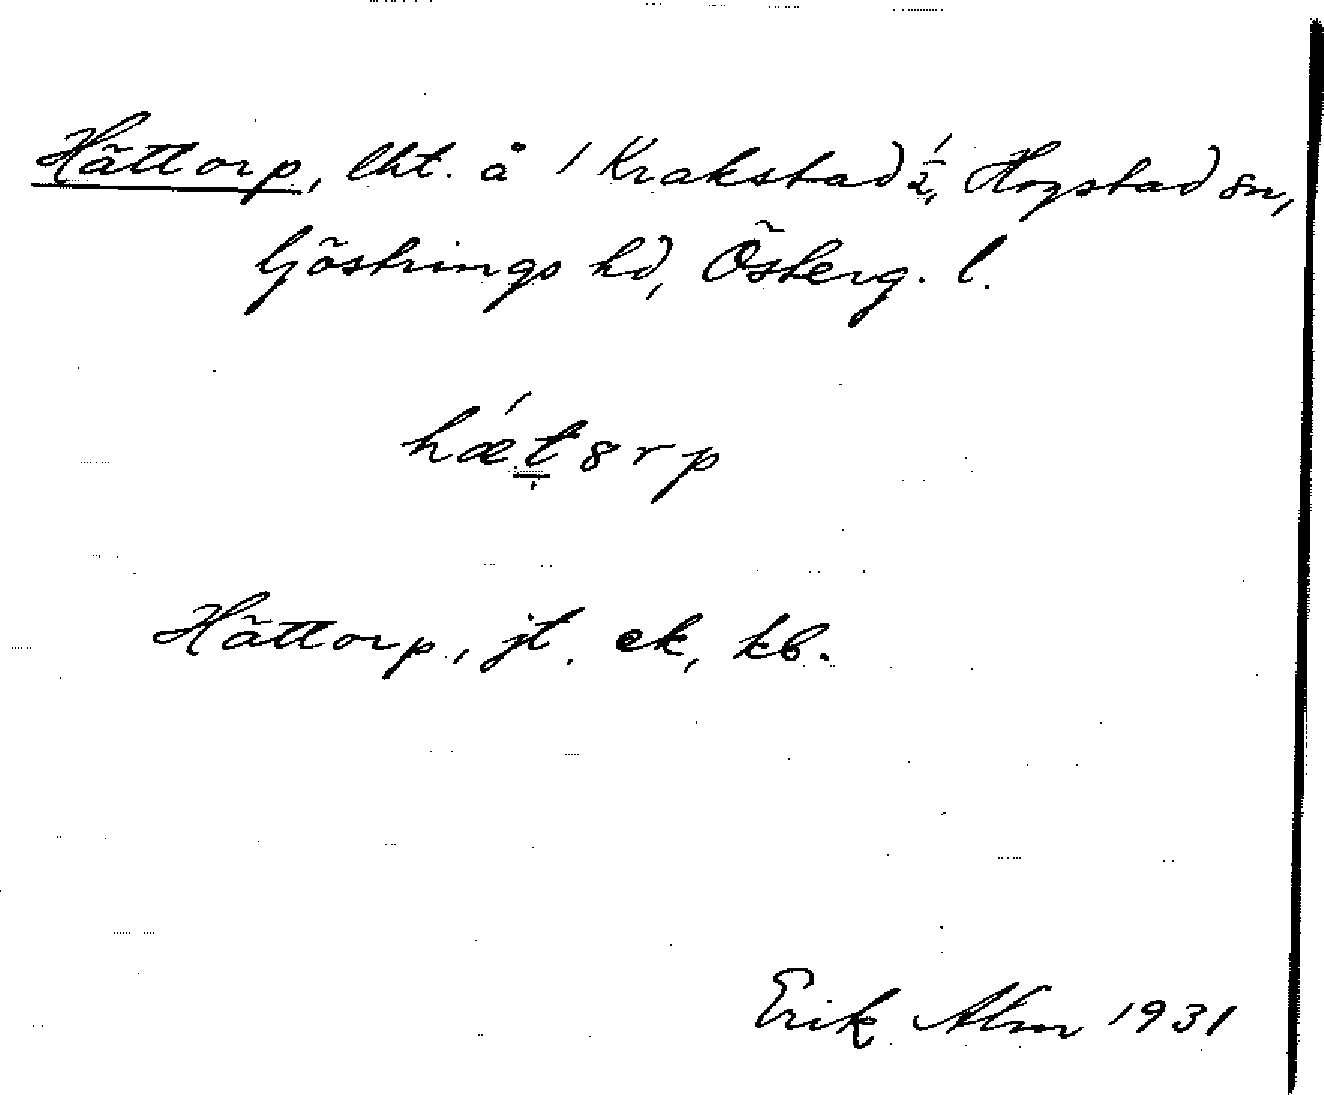 Hättorp, lht. å 1 Krakstad ½, Hogstad sn,
Göstrings hd, Österg. l.
hǽt̠ȣrp
Hättorp, jt. ek, kb.
Erik Alm 1931